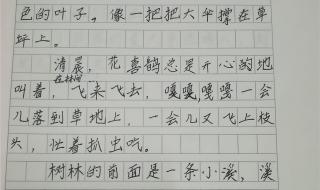 色的叶子。像一把把大伞撑在草
坪上。
清晨，花喜鹊总是开心的地
叫着，在林间飞来飞去，嘎嘎嘎一会
儿落到草地上，一会儿又飞上枝
头，忙着扒虫吃。
树林的前面是一条小溪，溪